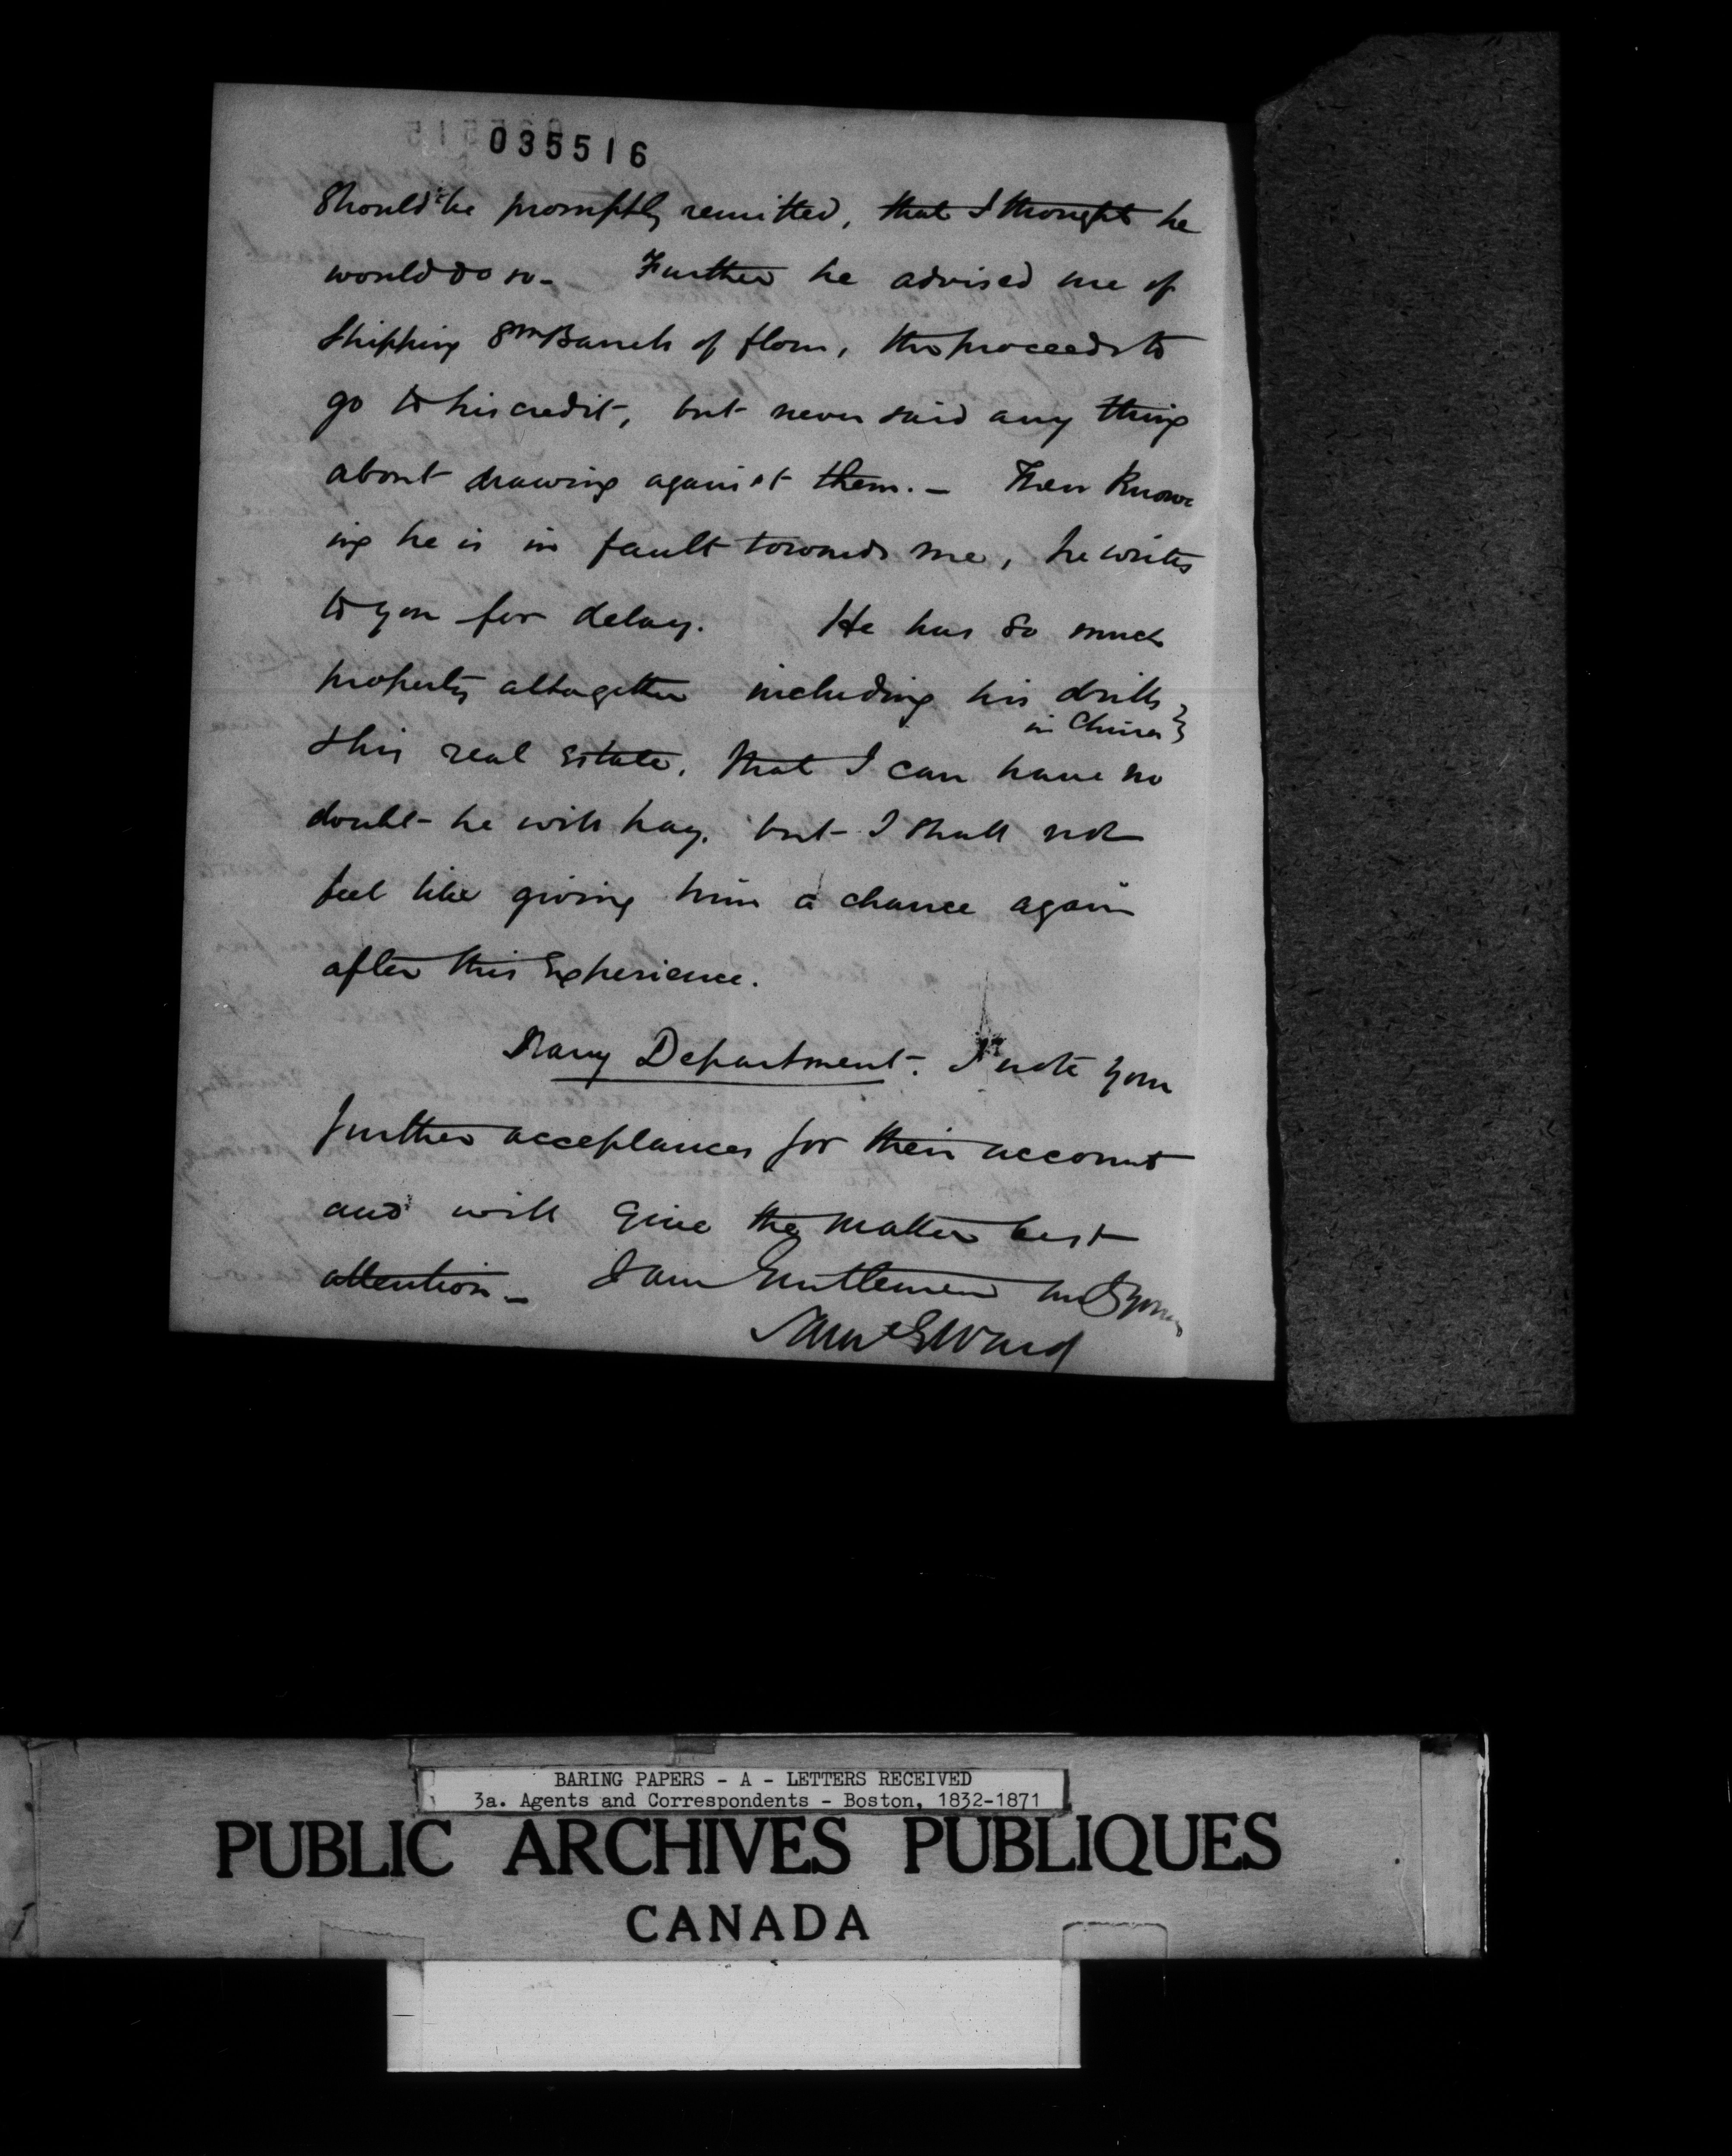 035516
Should be promptly remitted, that I thought he
would do so - Further he advised me of
Shipping 8m Barrels of flour, the proceeds to
go to his credit, but never said any thing
about drawing against them. - Then know
ing he is in fault towards me, he writes
to you for delay. He has so much
property altogether including his drills
in China
& his real Estate, that I can have no
doubt he will pay, but I shall not
feel like giving him a chance again
after this Experience.
Navy Department. I note your
further acceptances for their account
and will give the matter best
attention - I am Gentlemen yours
Saml G Ward
BARING PAPERS - A - LETTERS RECEIVED
3a. Agents and Correspondents - Boston, 1832-1871
PUBLIC ARCHIVES PUBLIQUES
CANADA